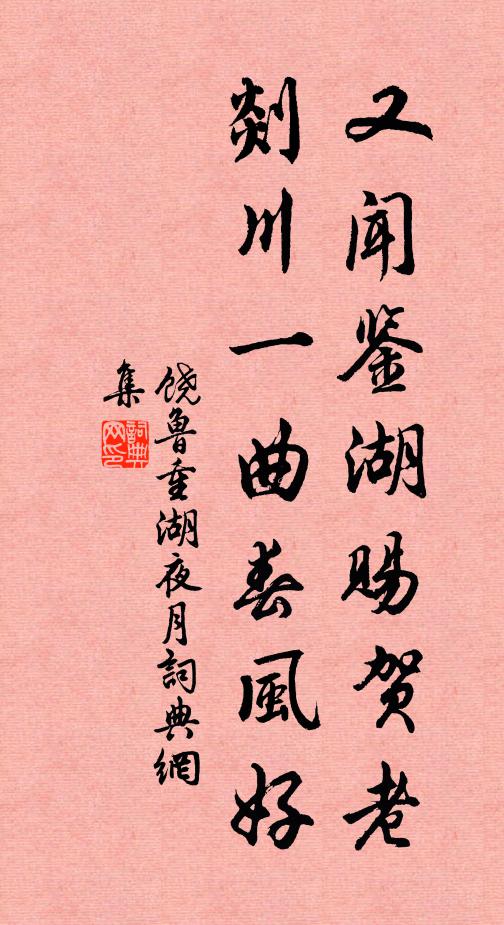 又闻鉴湖赐贺老
剡川一曲春风好
饶鲁重湖夜月詞典網
集
詞典
网印